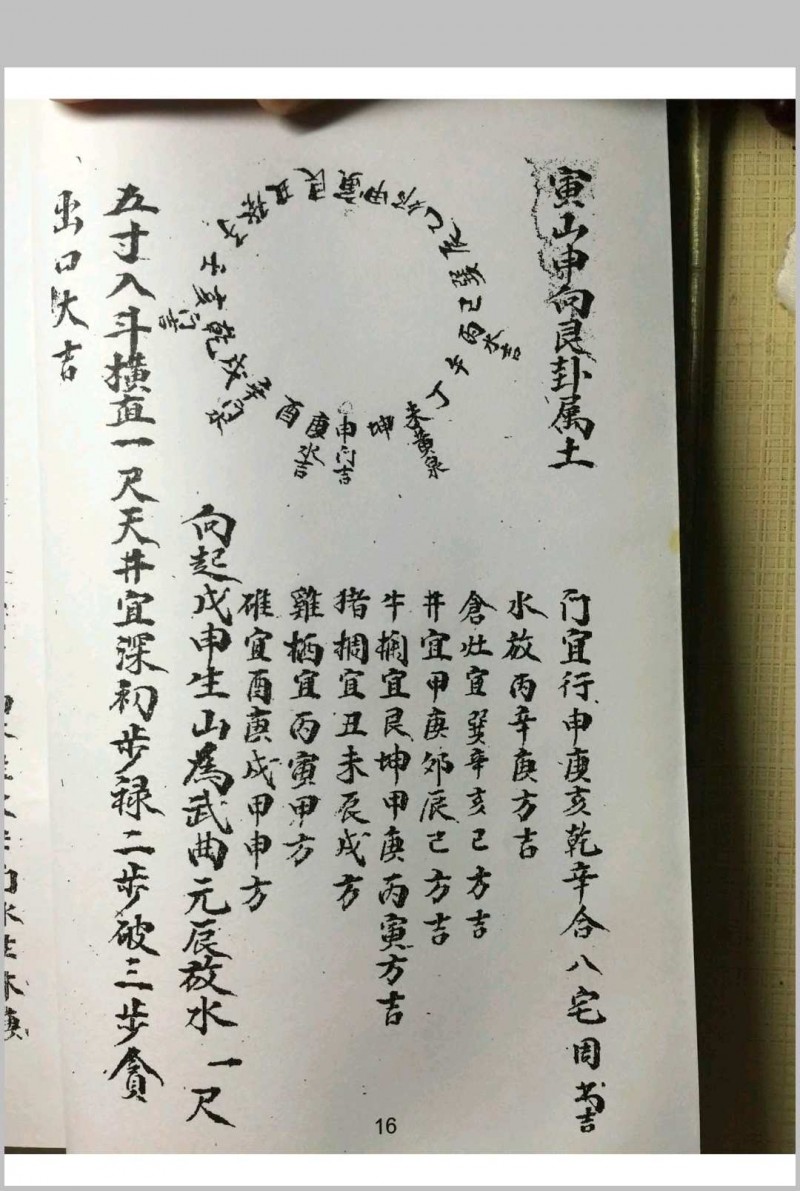 寅山申向艮卦属土
門宜行申庚亥乾辛合八宅周書吉
水放丙辛庚方吉
倉灶宜巽辛亥己方吉
井宜甲庚卯辰己方吉
牛欄宜艮坤甲庚丙寅方吉
猪椆宜丑未辰戌方
雞栖宜丙寅甲方
碓宜酉庚戌甲申方
向起戊申生山為武曲元辰放水一尺
五寸入斗横直一尺天井宜深初步禄二步破三步貪
出口大吉
子
癸
丑
艮
寅
甲
卯
乙
辰
巽
己
丙水吉
午
丁
未黄泉
坤
申门吉
庚水吉
酉
辛
戌
乾
亥
壬
16